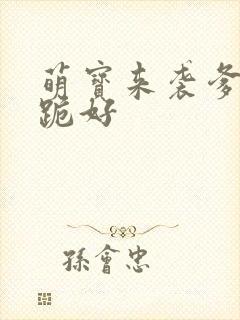 萌寶来袭爹
跪好
孫會忠